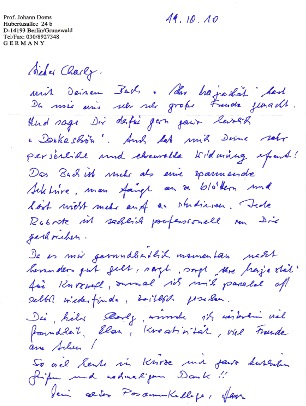 Prof. Johann Doms
Hubertusallee 24 b
D-14193 Berlin/Grunewald
Tel/Fax: 030/8927348
GERMANY
19.10.10
Lieber Charly,
mit Deinem Buch "Ihre Majestät" hast
Du mir eine sehr sehr große Freude gemacht.
Und sage Dir dafür ganz herzlich
"Dankeschön". Auch hat mich Deine sehr
persönliche und ehrenvolle Widmung gefreut!
Das Buch ist mehr als eine spannende
Lektüre, man fängt an zu blättern und
hört nicht mehr auf zu studieren. Jede
ist sachlich professionell von Dir
geschrieben.
Da es mir gesundheitlich momentan nicht
besonders gut geht, sorgt "Ihre Majestät"
für Kurzweil, zumal ich mich parallel oft
selbst wiederfinde, zeitlich gesehen.
Dir, lieber Charly, wünsche ich weiterhin viel
Gesundheit, Elan, Kreativität, viel Freude
am Leben!
So viel heute in Kürze mit ganz herzlichen
Grüßen und nochmaligem Dank!!
Dein alter Posaunenkollege,